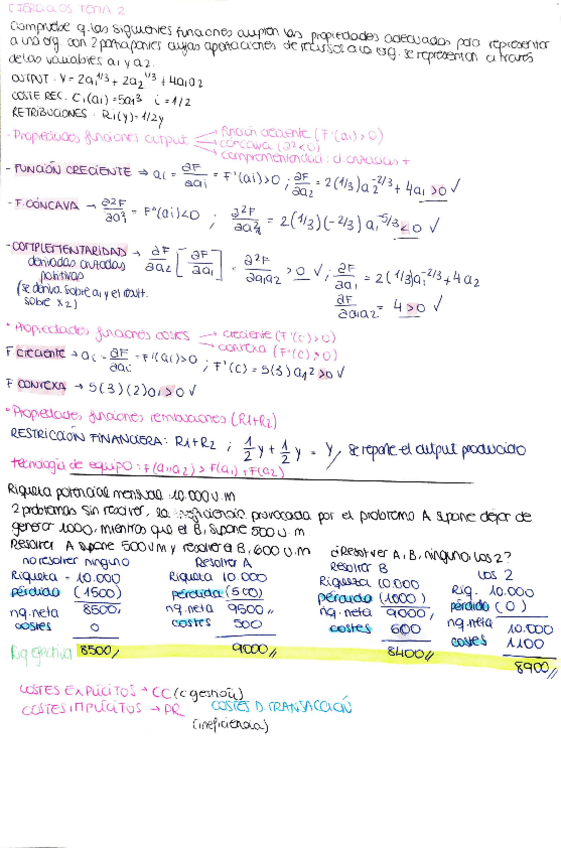 EJERCICIOS TEMA 2
Compruebe q. las siguientes funciones cumplen las propiedades adecuadas para representar
a una org. con 2 participantes cuyas aportaciones de recursos a la org. se representan a través
de las variables a1 y a2.
OUTPUT: Y = 2a1^1/3 + 2a2^1/3 + 4a1a2
COSTE REC. Ci(ai) = 5ai³ i = 1/2
RETRIBUCIONES: Ri(y) = 1/2y
- Propiedades funciones output → función creciente (F'(ai) > 0)
→ cóncava (∂² < 0)
→ complementariedad: d. cruzadas +
- FUNCIÓN CRECIENTE → ai = ∂F/∂ai = F'(ai) > 0 ; ∂F/∂a2 = 2(1/3)a2^-2/3 + 4a1 > 0 ✓
- F. CÓNCAVA → ∂²F/∂ai² = F''(ai) < 0 ; ∂²F/∂a1² = 2(1/3)(-2/3)a1^-5/3 < 0 ✓
- COMPLEMENTARIDAD → ∂F/∂a2 [∂F/∂a1] = ∂²F/∂a1a2 > 0 ✓ ; ∂F/∂a1 = 2(1/3)a1^-2/3 + 4a2
derivadas cruzadas
positivas
(se deriva sobre a1 y el result.
sobre x2)
∂F/∂a1a2 = 4 > 0 ✓
* Propiedades funciones costes → creciente (F'(c) > 0)
→ convexa (F''(c) > 0)
F creciente → ai = ∂F/∂ai = F'(ai) > 0 ; F'(c) = 5(3)a1² > 0 ✓
F CONVEXA → 5(3)(2)a1 > 0 ✓
* Propiedades funciones remuneraciones (R1+R2)
RESTRICCIÓN FINANCIERA: R1+R2 ; 1/2 y + 1/2 y = y / se reparte el output producido
tecnología de equipo: F(a1,a2) > F(a1) + F(a2)
Riqueza potencial mensual: 10.000 u.m
2 problemas sin resolver, la ineficiencia provocada por el problema A supone dejar de
generar 1000, mientras que el B, supone 500 u.m.
Resolver A supone 500 um y resolver el B, 600 u.m ¿Resolver A, B, ninguno, los 2?
no resolver ninguno
Riqueza - 10.000
pérdida (1500)
rq. neta 8500,
costes 0
Riq efectiva 8500,
Resolver A
Riqueza 10.000
pérdida (500)
rq. neta 9500,
costes 500
9000,
Resolver B
Riqueza 10.000
pérdida (1000)
rq. neta 9000,
costes 600
8400,
Los 2
Riq. 10.000
pérdida (0)
rq. neta 10.000
costes 1100
8900,
COSTES EXPLÍCITOS → CC (c gestión)
COSTES IMPLÍCITOS → PR COSTES D TRANSACCIÓN
(ineficiencia)